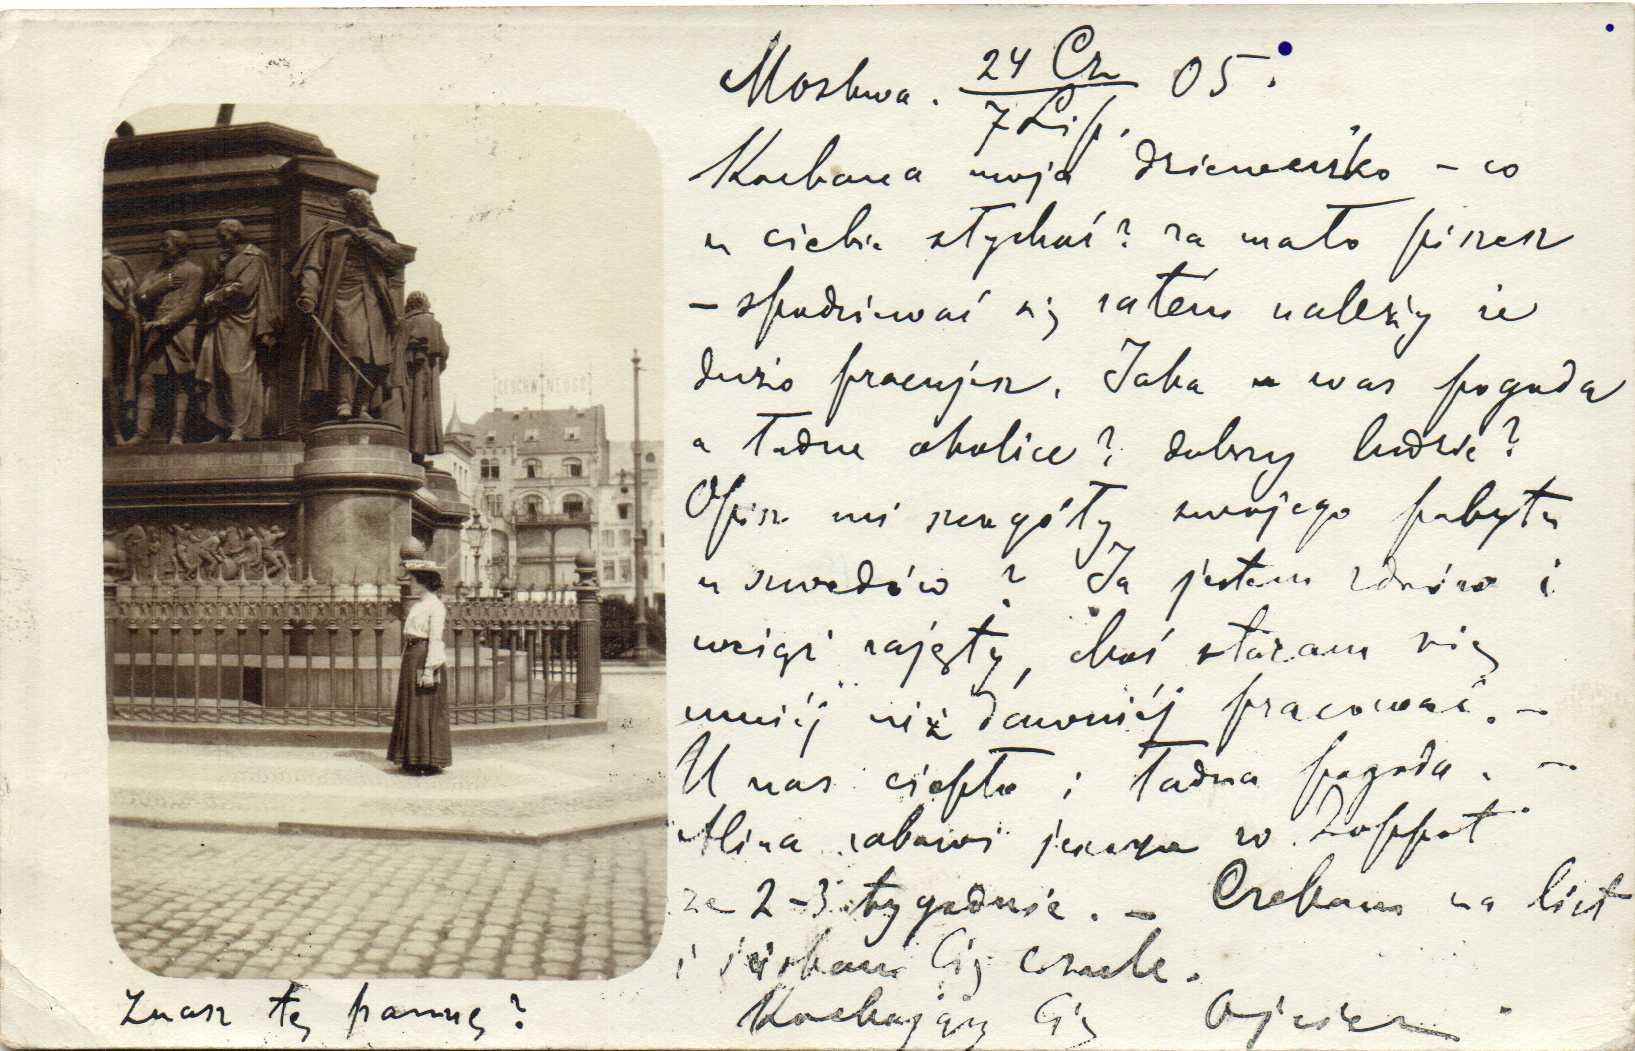 Moskwa. 24 Cz / 7 Lip. 05.
Kochana moja dzieweczko – co
u ciebie słychać? za mało piszesz
– spodziewać się zatem należy że
dużo pracujesz. Jaka u was pogoda
a ładne okolice? dobrzy ludzie?
Opisz mi szczegóły swojego pobytu
u szwedów? Ja jestem zdrów i
wciąż zajęty, choć staram się
mniéj niż dawniéj pracować. –
U nas ciepło i ładna pogoda. –
Alina zabawi jeszcze w Zoppot
ze 2–3 tygodnie. – Czekam na list
i ściskam Cię czule.
Kochający Cię Ojciec
Znasz tę pannę?